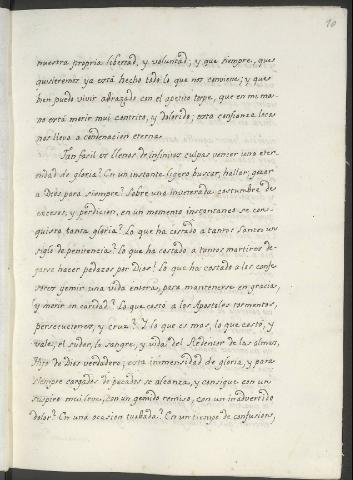 10
nuestra propria libertad, y voluntad; y que siempre, que
quisieremos ya está hecho todo lo que nos conviene; y que
bien puedo vivir abrazado con el apetito torpe, que en mi ma-
no está morir mui contrito, y dolorido; esta confianza loca
nos lleva a condenacion eterna.
Tan facil es llenos de infinitas culpas vencer una eter-
nidad de gloria? En un instante ligero buscar, hallar, gozar
a Dios para siempre? Sobre una inveterada costumbre de
excesos, y perdicion, en un momento instantaneo se con-
quista tanta gloria? Lo que ha costado a tantos Santos un
siglo de penitencia? Lo que ha costado a tantos martires de-
jarse hacer pedazos por Dios? Lo que ha costado a los confe-
sores gemir una vida entera, para mantenerse en gracia,
y morir en caridad? Lo que costó a los Apostoles tormentos,
persecuciones, y cruz? Y lo que es mas, lo que costó, y
vale, el sudor, la sangre, y vida del Redentor de las almas,
Hijo de Dios verdadero; esta inmensidad de gloria, y para
siempre cargados de pecados se alcanza, y consigue con un
suspiro mui leve, con un gemido remiso, con un inadvertido
dolor? En una ocasion turbada? En un tiempo de confusions,